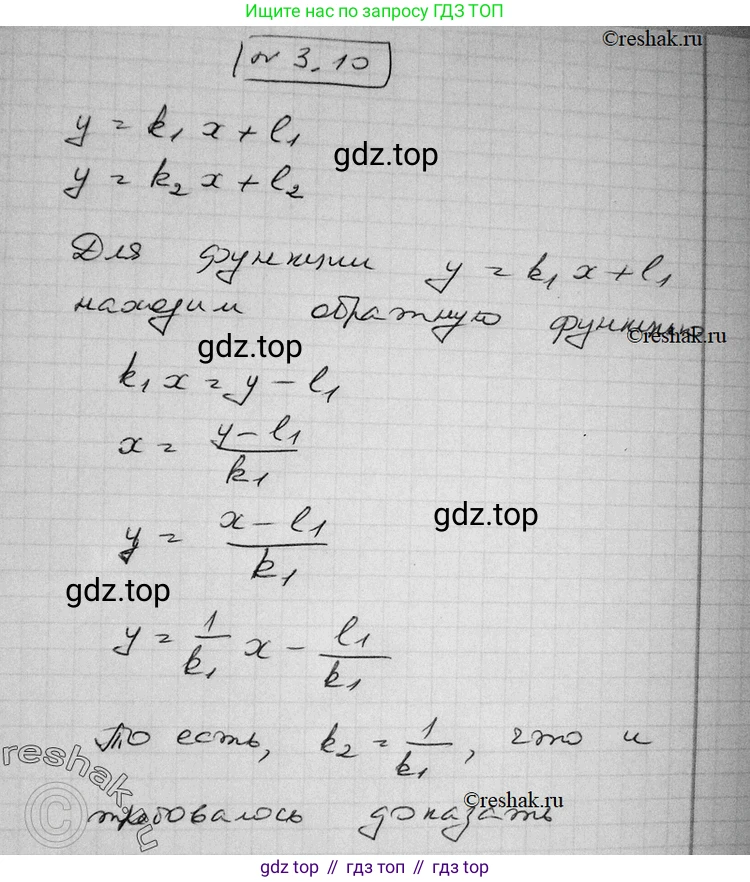 Ищите нас по запросу ГДЗ ТОП
©reshak.ru
№ 3.10
y = k₁x + l₁
gdz.top
y = k₂x + l₂
Для функции y = k₁x + l₁
находим обратную функцию
©reshak.ru
gdz.top
k₁x = y - l₁
x = (y - l₁)/k₁
gdz.top
y = (x - l₁)/k₁
gdz.top
y = 1/k₁ x - l₁/k₁
То есть, k₂ = 1/k₁, что и
reshak.ru
©
©reshak.ru
требовалось доказать
gdz top // гдз топ // гdz top